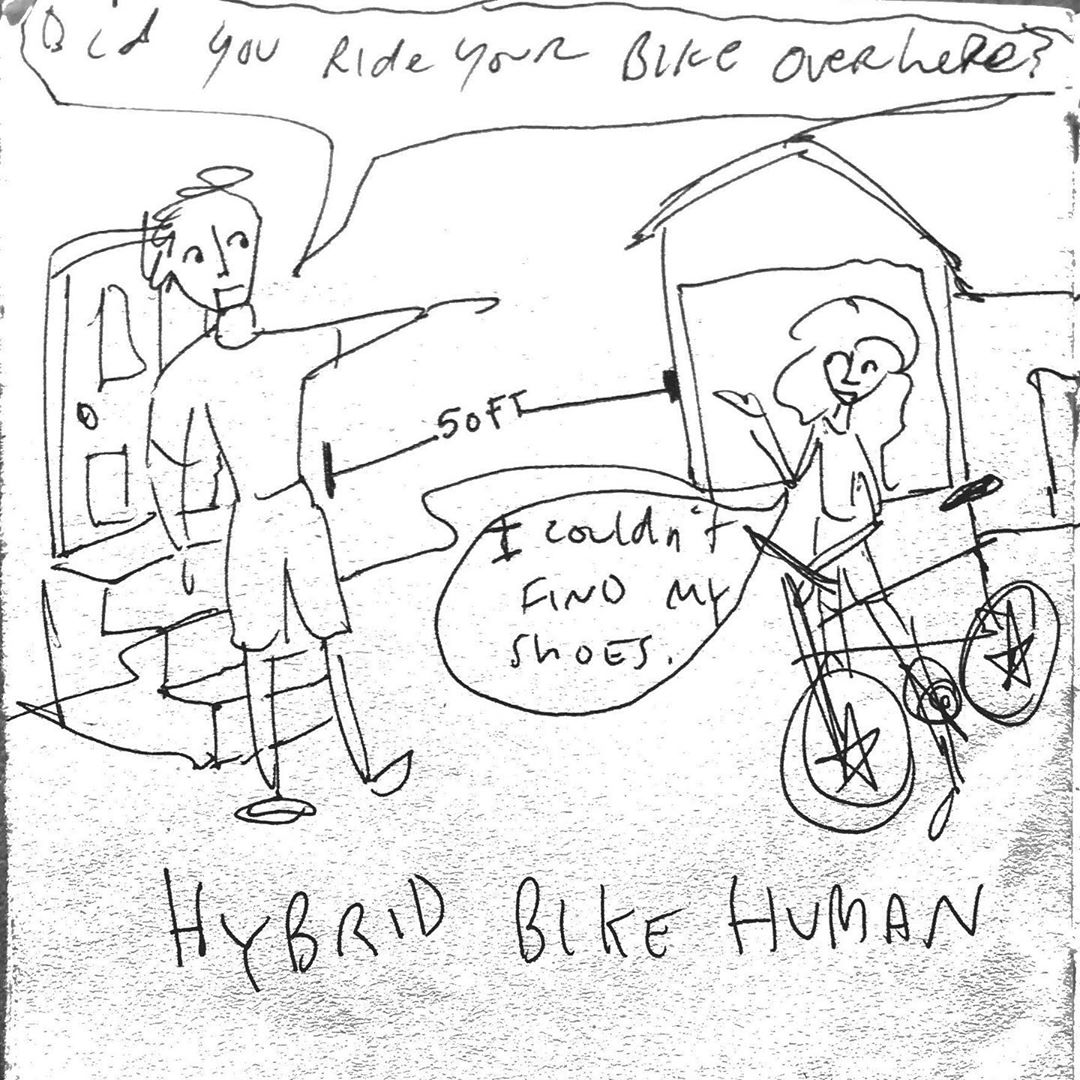 Did you Ride your Bike over here?
50FT
I couldn't
FIND MY
SHOES.
HYBRID BIKE HUMAN